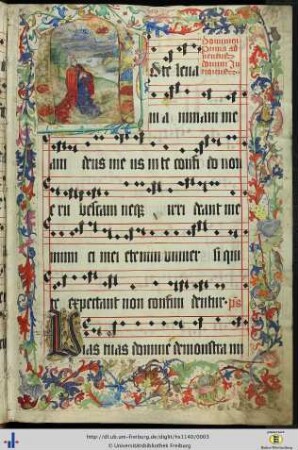 Dominica
prima ad
te leva
vi animam me
am deus meus in te confi do non
e ru bescam neq irri deant me
inim ici mei etenim univer si qui
te expectant non confun dentur ps
Vias tuas domine demonstra mi
http://dl.ub.uni-freiburg.de/diglit/hs1140/0003
© Universitätsbibliothek Freiburg